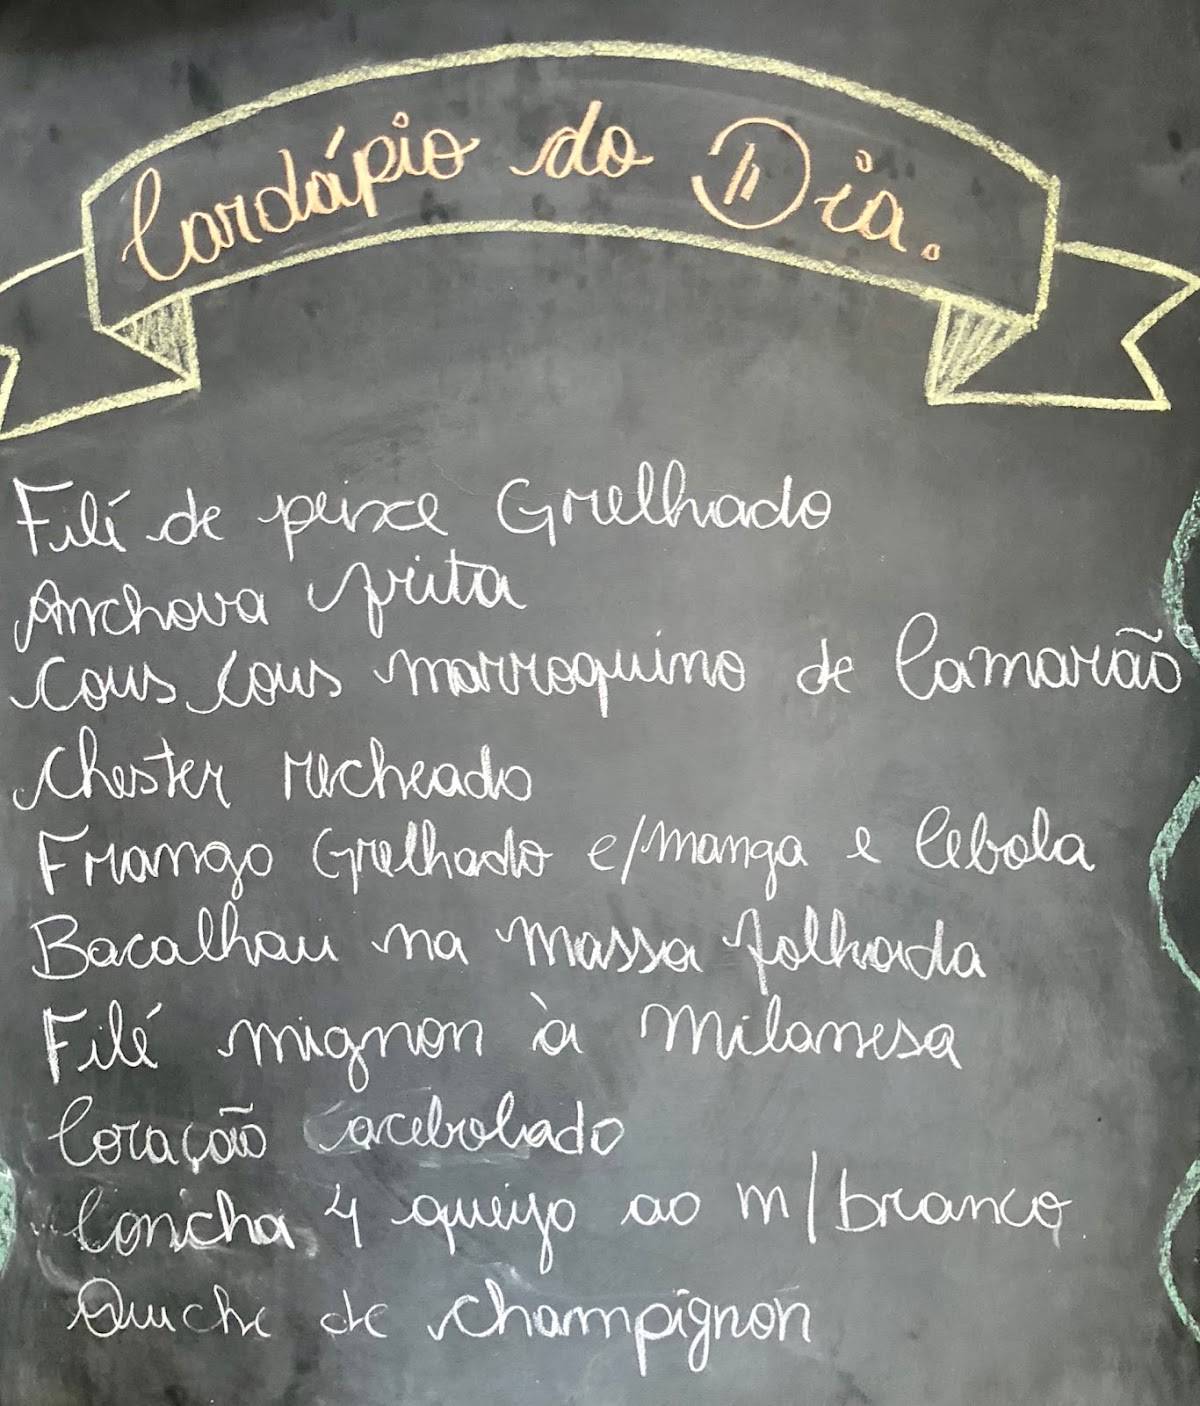 Cardápio do Dia.
Filé de peixe Grelhado
Anchova frita
Cous Cous marroquino de Camarão
Chester recheado
Frango Grelhado c/manga e Cebola
Bacalhau na massa folhada
Filé mignon à Milanesa
Coração acebolado
Concha 4 queijo ao m/branco
Quiche de champignon